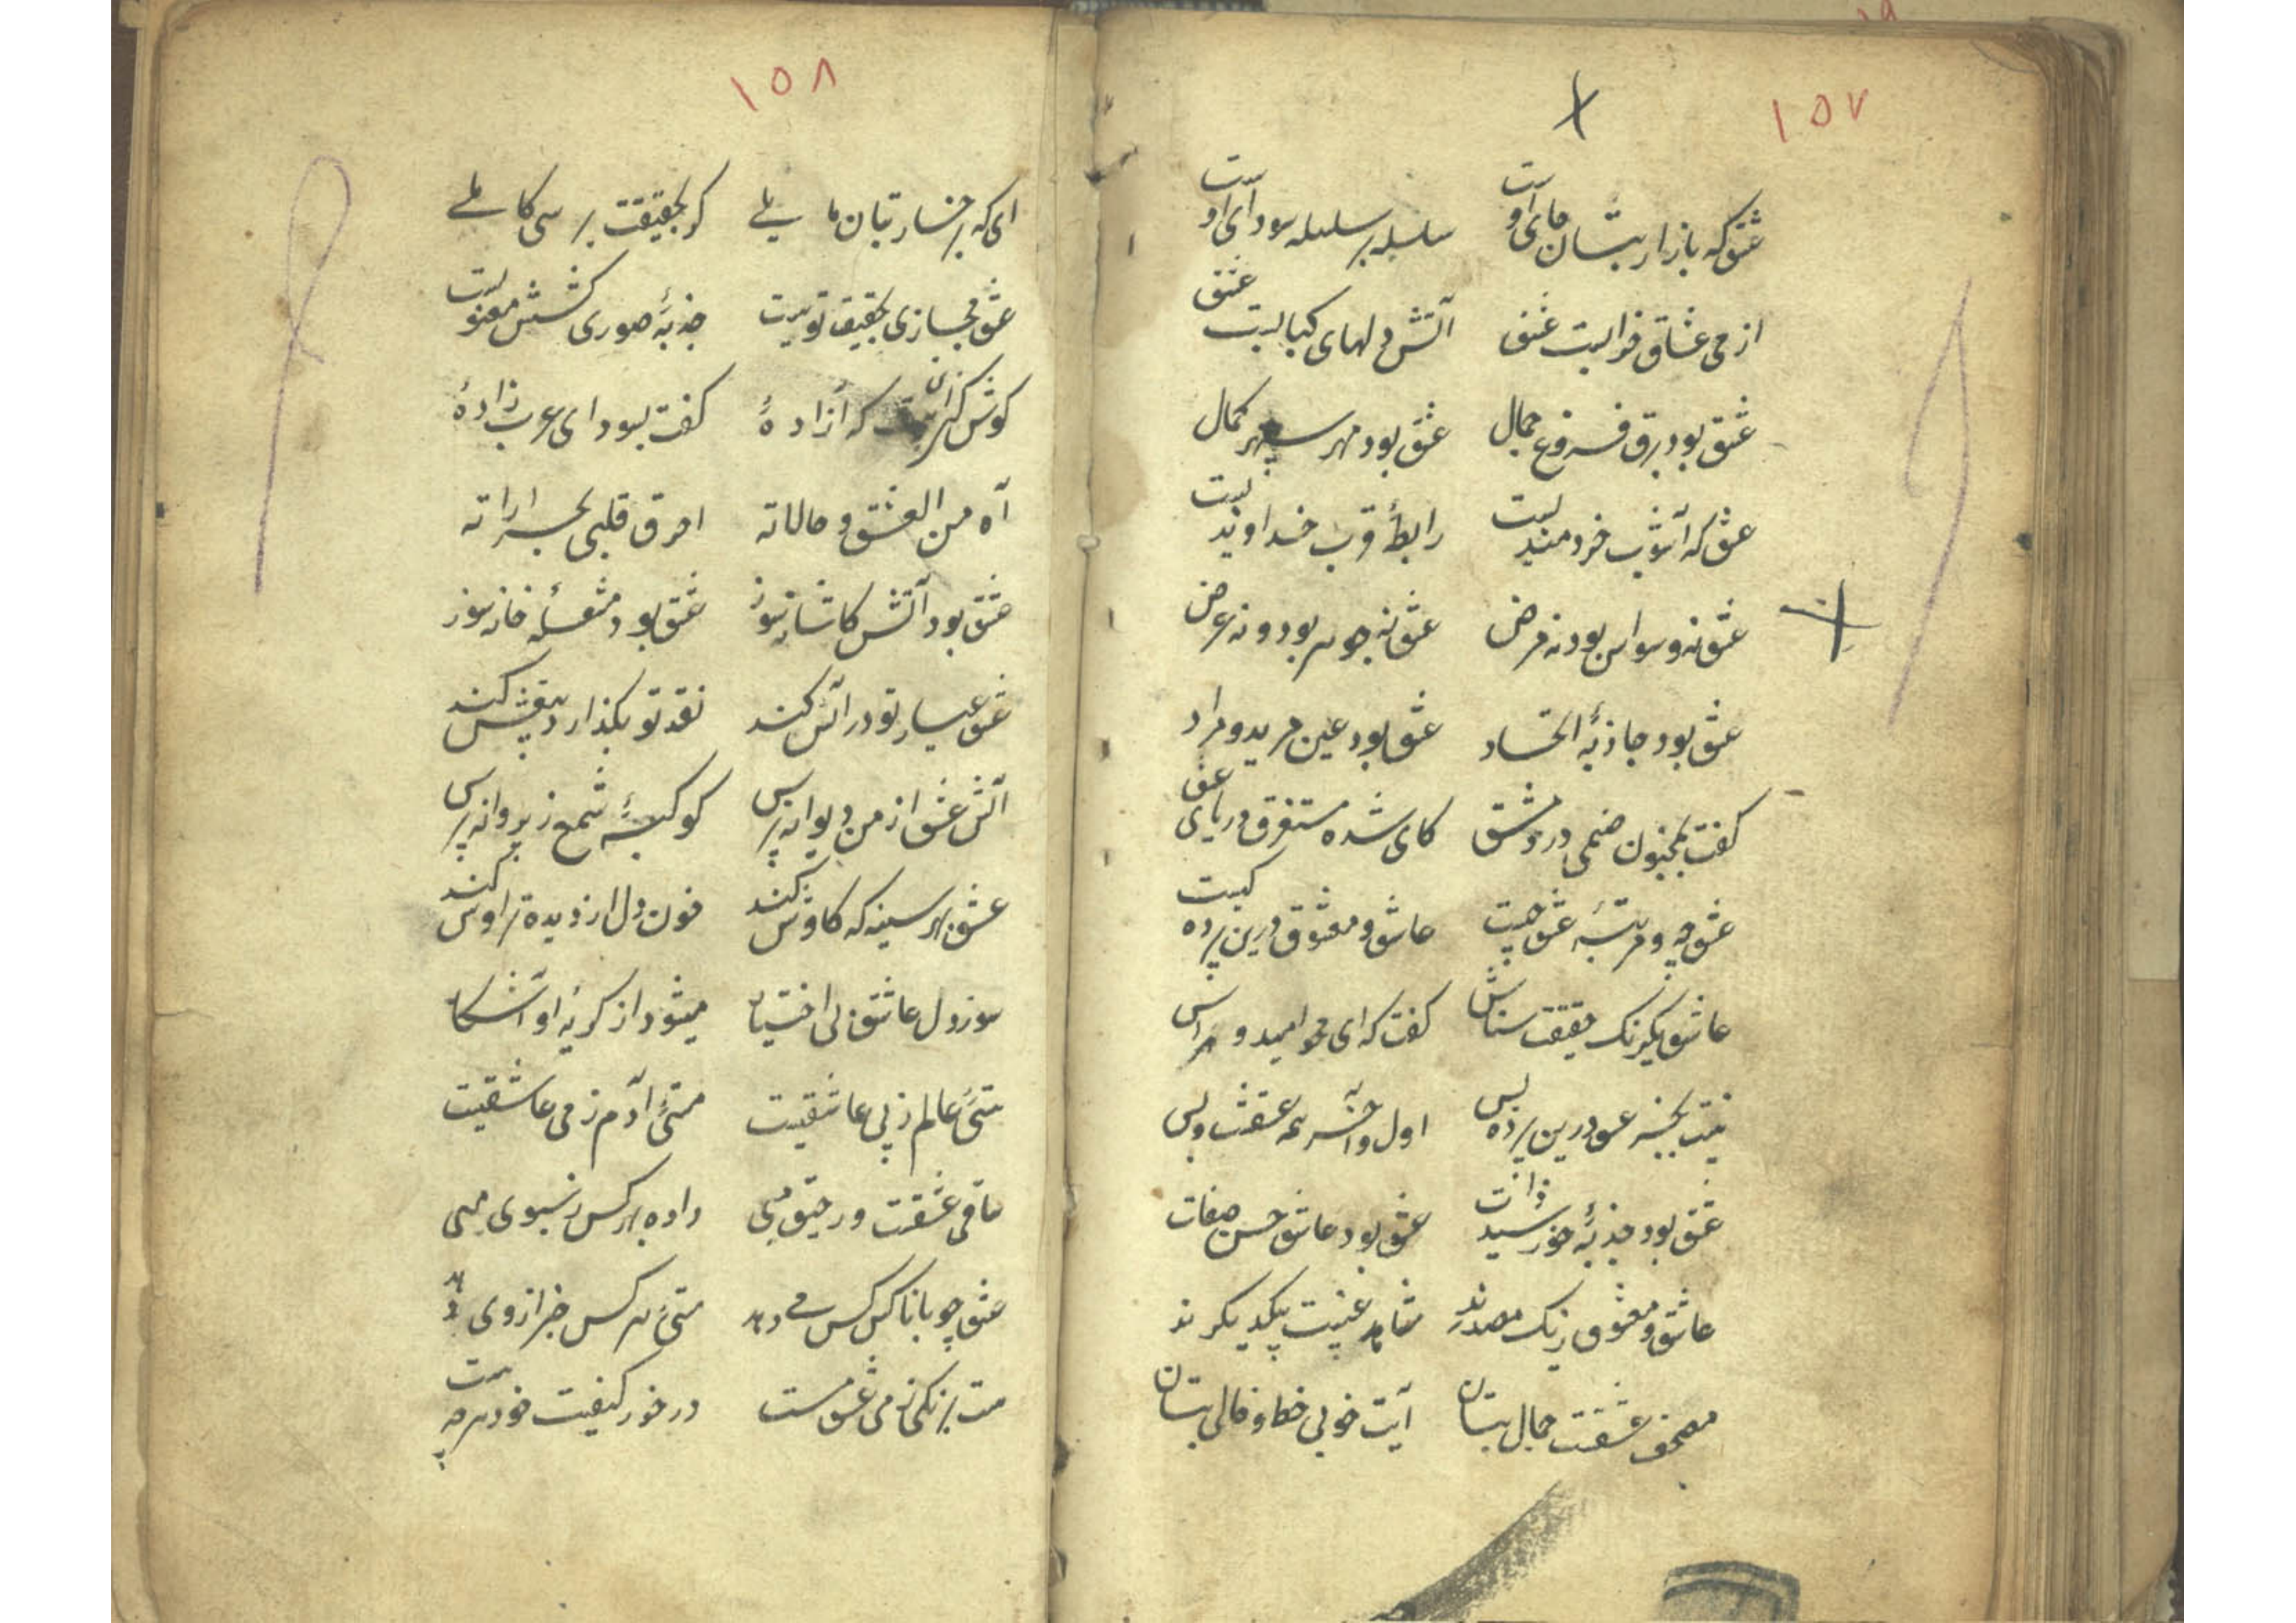 ۱۵۷
عشق که بازار بتان جای اوست سلسله بر سلسله سودای اوست
از می عشاق خرابست عشق آتش دلهای کبابست عشق
عشق بود برق فروغ جمال عشق بود مهر سپهر کمال
عشق که آشوب خردمندیست رابطهٔ قرب خداوندیست
عشق نه وسواس بود نه مرض عشق نه جوهر بود و نه عرض
عشق بود جاذبهٔ اتحاد عشق بود عین مرید و مراد
گفت بمجنون صنمی در دمشق کای شده مستغرق دریای عشق
عشق چه و مرتبهٔ عشق چیست عاشق و معشوق درین پرده کیست
عاشق یکرنگ حقیقت شناس گفت که ای محو امید و هراس
نیست بجز عشق درین پرده کس اول و آخر همه عشقست و بس
عشق بود جذبهٔ خورشید ذات عشق بود عاشق حسن صفات
عاشق و معشوق ز یک مصدرند شاهد غیبت یکدیگرند
مصحف عشقت جمال بتان آیت خوبی خط و خال بتان
۱۵۸
ای که برخسار بتان مایلی گر بحقیقت برسی کاملی
عشق مجازی بحقیقت قویست جذبهٔ صوری کشش معنویست
گوش کن که آزادهٔ گفت بسودای عرب زادهٔ
آه من العشق و حالاته احرق قلبی بحراراته
عشق بود آتش کاشانه سوز عشق بود مشعلهٔ خانه سوز
عشق عیار تو در آتش کند نقد تو بگذارد و بیغش کند
آتش عشق از من دیوانه پرس کوکبهٔ شمع ز پروانه پرس
عشق بهر سینه که کاوش کند خون دل از دیده تراوش کند
سوز دل عاشق بی اختیار میشود از گریهٔ او آشکار
مستی عالم ز پی عاشقیست مستی آدم ز می عاشقیست
ساقی عشقت و رحیق میی داده بهر کس ز سبوی میی
عشق چو با ناکس و کس می دهد مستی هر کس خبر از وی دهد
مست برنگی ز می عشق مست در خور کیفیت خود هر چه هست